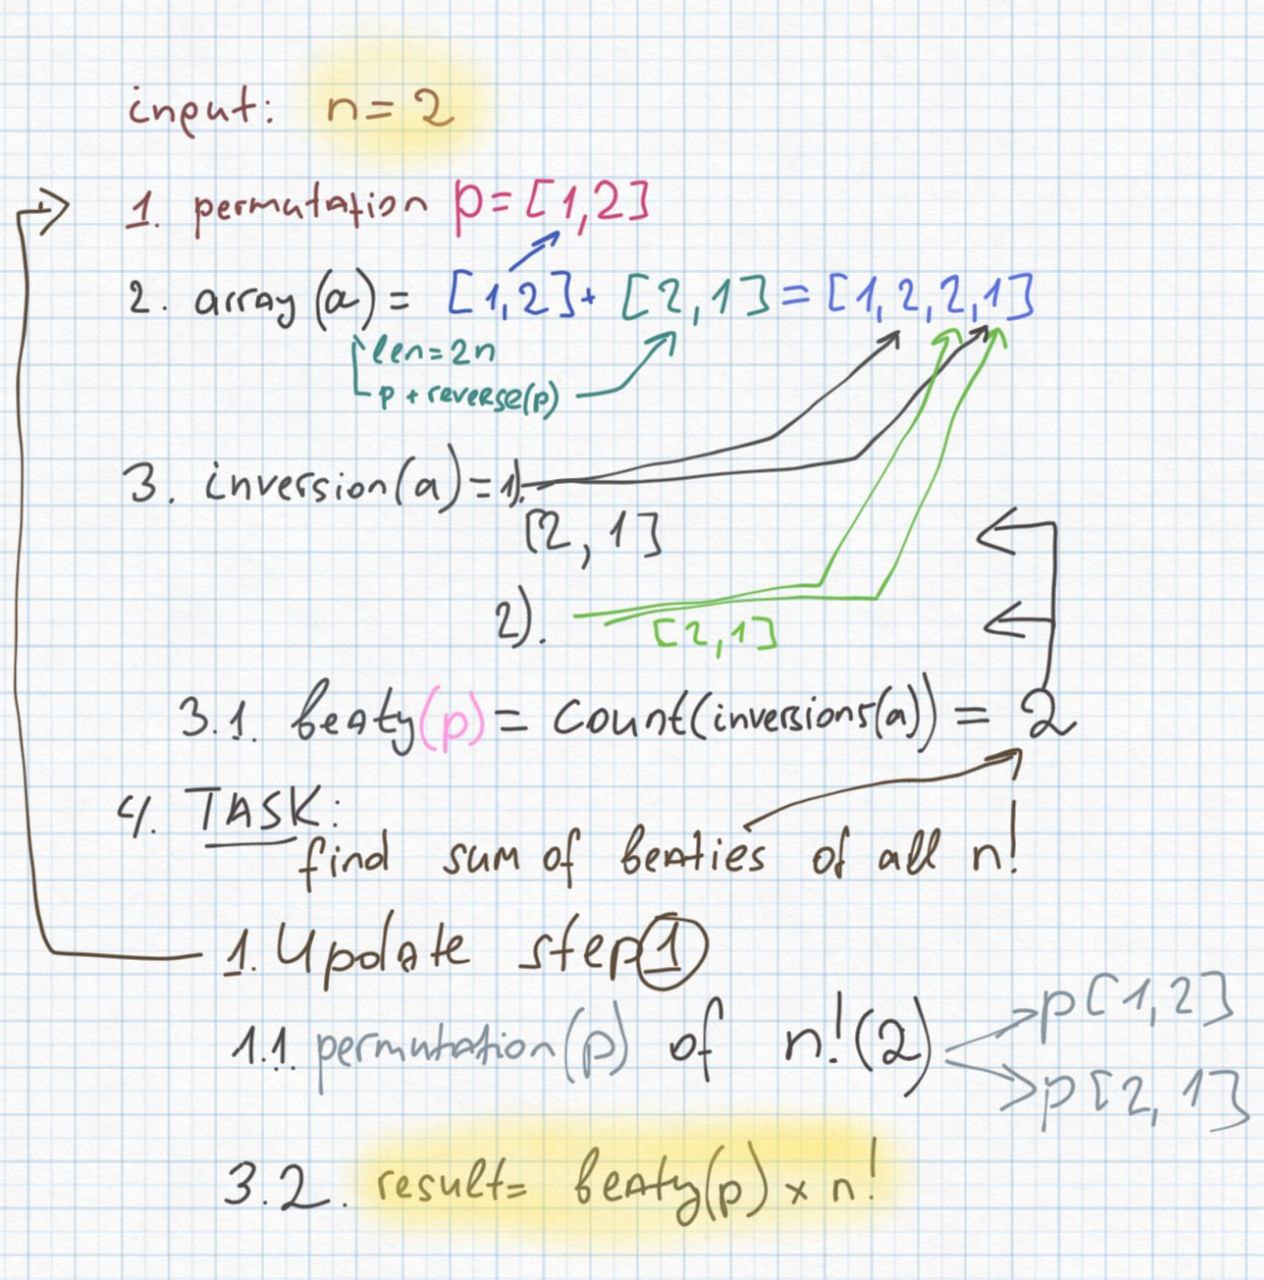 input: n=2
1. permutation p=[1,2]
2. array (a) = [1,2]+ [2,1] = [1,2,2,1]
len=2n
p + reverse(p)
3. inversion(a)=1).
[2,1]
2).
[2,1]
3.1. beaty(p) = count(inversions(a)) = 2
4. TASK:
find sum of beaties of all n!
1. Update step 1
1.1. permutation(p) of n!(2)
p[1,2]
p[2,1]
3.2. result= beaty(p) x n!